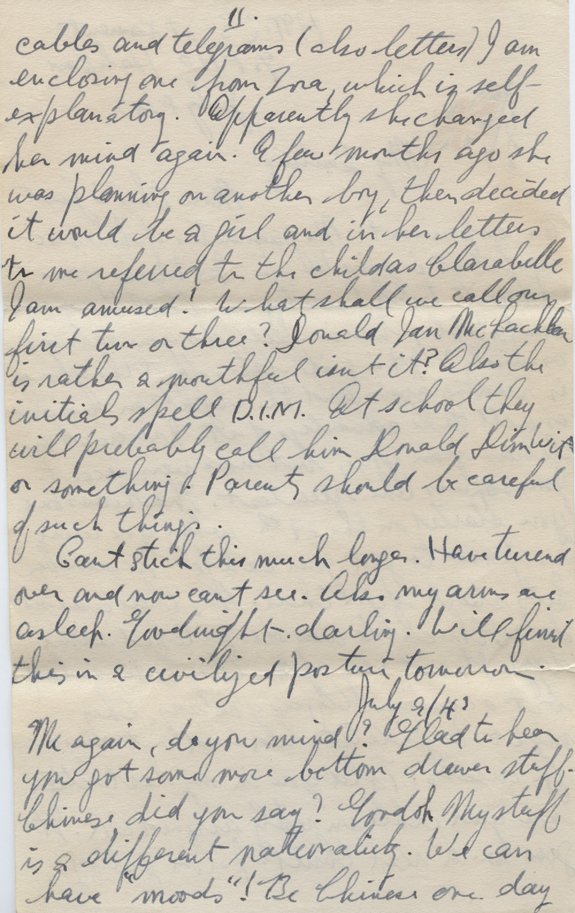 11.
cables and telegrams (also letters) I am
enclosing one from Zora, which is self-
explanatory. Apparently she changed
her mind again. A few months ago she
was planning on another boy, then decided
it would be a girl and in her letters
to me referred to the child as Clarabelle
I am amused! What shall we call our
first two or three? Donald Ian McLachlan
is rather a mouthful isn't it? Also the
initials spell D.I.M. At school they
will probably call him Donald Dimwit
or something. Parents should be careful
of such things.
Can't stick this much longer. Have turned
over and now can't see. Also my arms are
asleep. Goodnight darling. Will finish
this in a civilized posture tomorrow.
July 9/43
Me again, do you mind? Glad to hear
you got some more bottom drawer stuff.
Chinese did you say? Gordon My stuff
is a different nationality. We can
have "moods"! Be Chinese one day